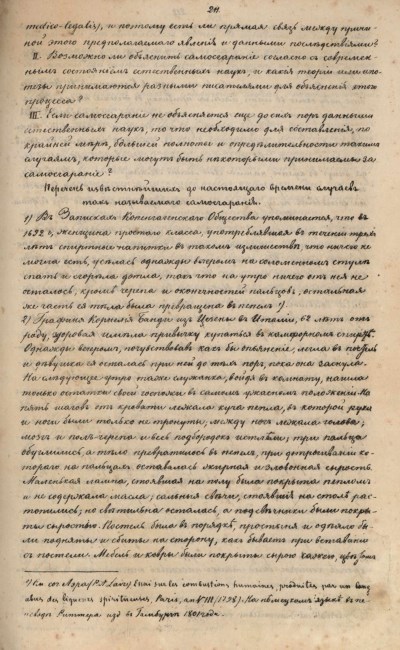 20.
medico-legalis), и потому есть ли прямая связь между причи-
ной этого предполагаемаго явленія и данными послѣдствіями?
II. Возможно ли объяснить самосгараніе согласно съ современ-
нымъ состояніемъ естественныхъ наукъ, и какія теоріи или гипо-
тезы принимаются разными писателями для объясненія этого
процесса?
III. Если самосгараніе не объясняется еще до сихъ поръ данными
естественныхъ наукъ, то что необходимо для составленія, по
крайней мѣрѣ, большей полноты и опредѣлительности такимъ
случаямъ, которые могутъ быть нѣкоторыми принимаемы за
самосгараніе?
Перечень извѣстнѣйшихъ до настоящаго времени случаевъ
такъ называемаго самосгаранія.
1) Въ Запискахъ Копенгагенскаго Общества упоминается, что въ
1692 г. женщина простаго класса, употреблявшая въ теченіи трехъ
лѣтъ спиртные напитки въ такомъ излишествѣ, что ничего не
могла ѣсть, усѣлась однажды вечеромъ на соломенномъ стулѣ
спать и сгорѣла дотла, такъ что на утро ничего отъ нея не
осталось, кромѣ черепа и оконечностей пальцевъ, остальная
же часть ея тѣла была превращена въ пепелъ ¹).
2) Графиня Корнелія Банди изъ Цезены въ Италіи, 62 лѣтъ отъ
роду, здоровая имѣла привычку купаться въ камфорномъ спиртѣ.
Однажды вечеромъ, почувствовавъ какъ бы опьяненіе, легла въ постель
и дѣвушка ея осталась при ней до тѣхъ поръ, пока она заснула.
На слѣдующее утро таже служанка, войдя въ комнату, нашла
только остатки своей госпожи въ самомъ ужасномъ положеніи. На
пять шаговъ отъ кровати лежала куча пепла, въ которой руки
и ноги были только не тронуты, между ногъ лежала голова;
мозгъ и полъ-черепа и весь подбородокъ истлѣли; три пальца
обуглились, а тѣло превратилось въ пепелъ, при дотрогиваніи ко-
тораго на пальцахъ оставалась жирная и зловонная сырость.
Маленькая лампа, стоявшая на полу была покрыта пепломъ
и не содержала масла; сальныя свѣчи, стоявшія на столѣ рас-
топились; но свѣтильна осталась, а подсвѣчники были покры-
ты сыростью. Постель была въ порядкѣ, простыня и одѣяло бы-
ли подняты и сбиты на сторону, какъ бываетъ при вставаніи
съ постели. Мебель и ковры были покрыты сырою сажею, цвѣта
¹) См. соч. Лэра (P. A. Lair) Essai sur les combustions humaines, produites par un long
abus des liqueurs spiritueuses, Paris, an VIII (1798). На нѣмецкомъ языкѣ въ пе-
реводѣ Риттера изд. въ Гамбургѣ 1801 года.